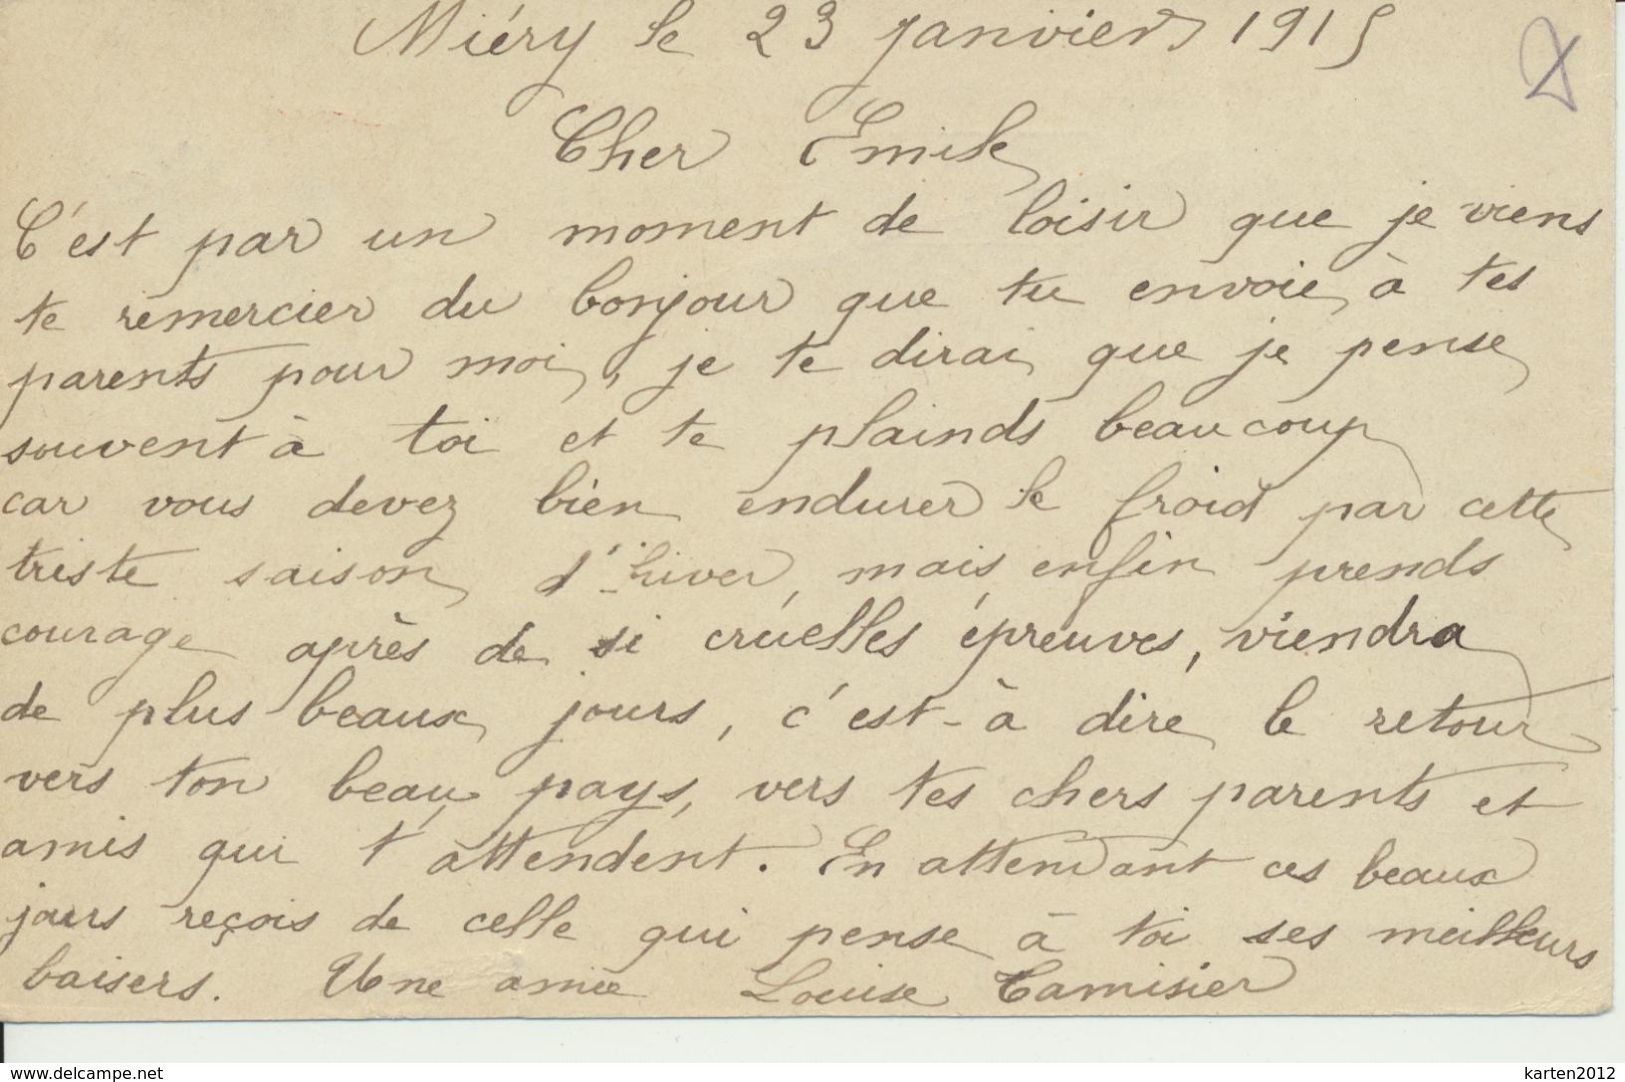 Miéry le 23 janvier 1915
Cher Emile
C'est par un moment de loisir que je viens
te remercier du bonjour que tu envoie à tes
parents pour moi, je te dirai que je pense
souvent à toi et te plainds beaucoup
car vous devez bien endurer le froid par cette
triste saison d'hiver, mais enfin prends
courage après de si cruelles épreuves, viendra
de plus beaux jours, c'est-à dire le retour
vers ton beau pays, vers tes chers parents et
amis qui t'attendent. En attendant ces beaux
jours reçois de celle qui pense à toi ses meilleurs
baisers. Une amie Louise Camisier
delcampe.net
karten2012